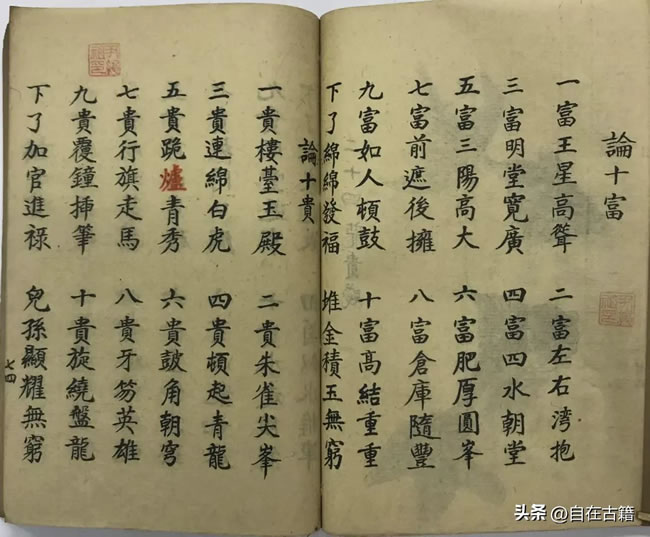 論十富
一富王星高聳　二富左右湾抱
三富明堂寬廣　四富四水朝堂
五富三陽高大　六富肥厚圓峯
七富前遮後擁　八富倉庫隨豐
九富如人頓鼓　十富高結重重
下了綿綿發福　堆金積玉無窮
論十貴
一貴樓臺玉殿　二貴朱雀尖峯
三貴連綿白虎　四貴頓起青龍
五貴跪爐青秀　六貴皷角朝穹
七貴行旗走馬　八貴牙笏英雄
九貴覆鐘揷筆　十貴旋繞盤龍
下了加官進禄　兒孫顯耀無窮
七四
头条 @自在古籍